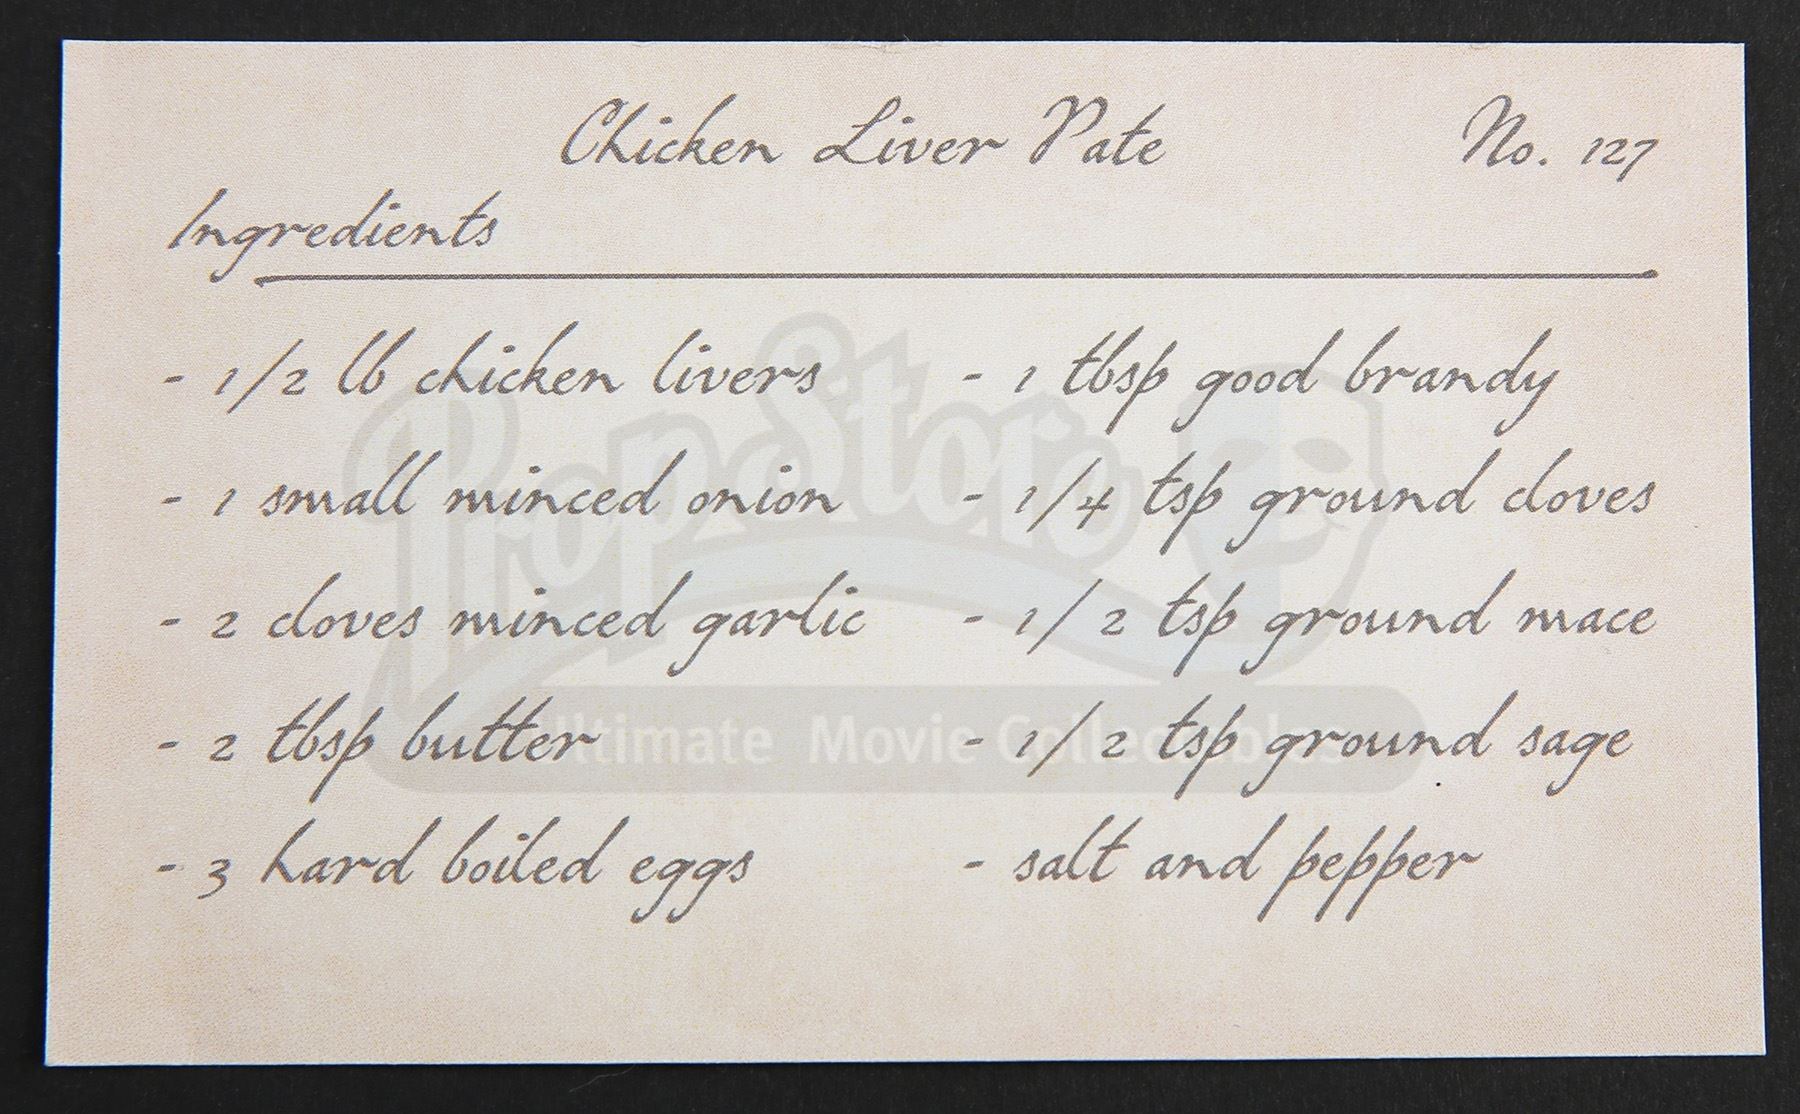 Chicken Liver Pate
No. 127
Ingredients
- 1/2 lb chicken livers
- 1 small minced onion
- 2 cloves minced garlic
- 2 tbsp butter
- 3 hard boiled eggs
- 1 tbsp good brandy
- 1/4 tsp ground cloves
- 1/2 tsp ground mace
- 1/2 tsp ground sage
- salt and pepper
PropStore
Ultimate Movie Collectables